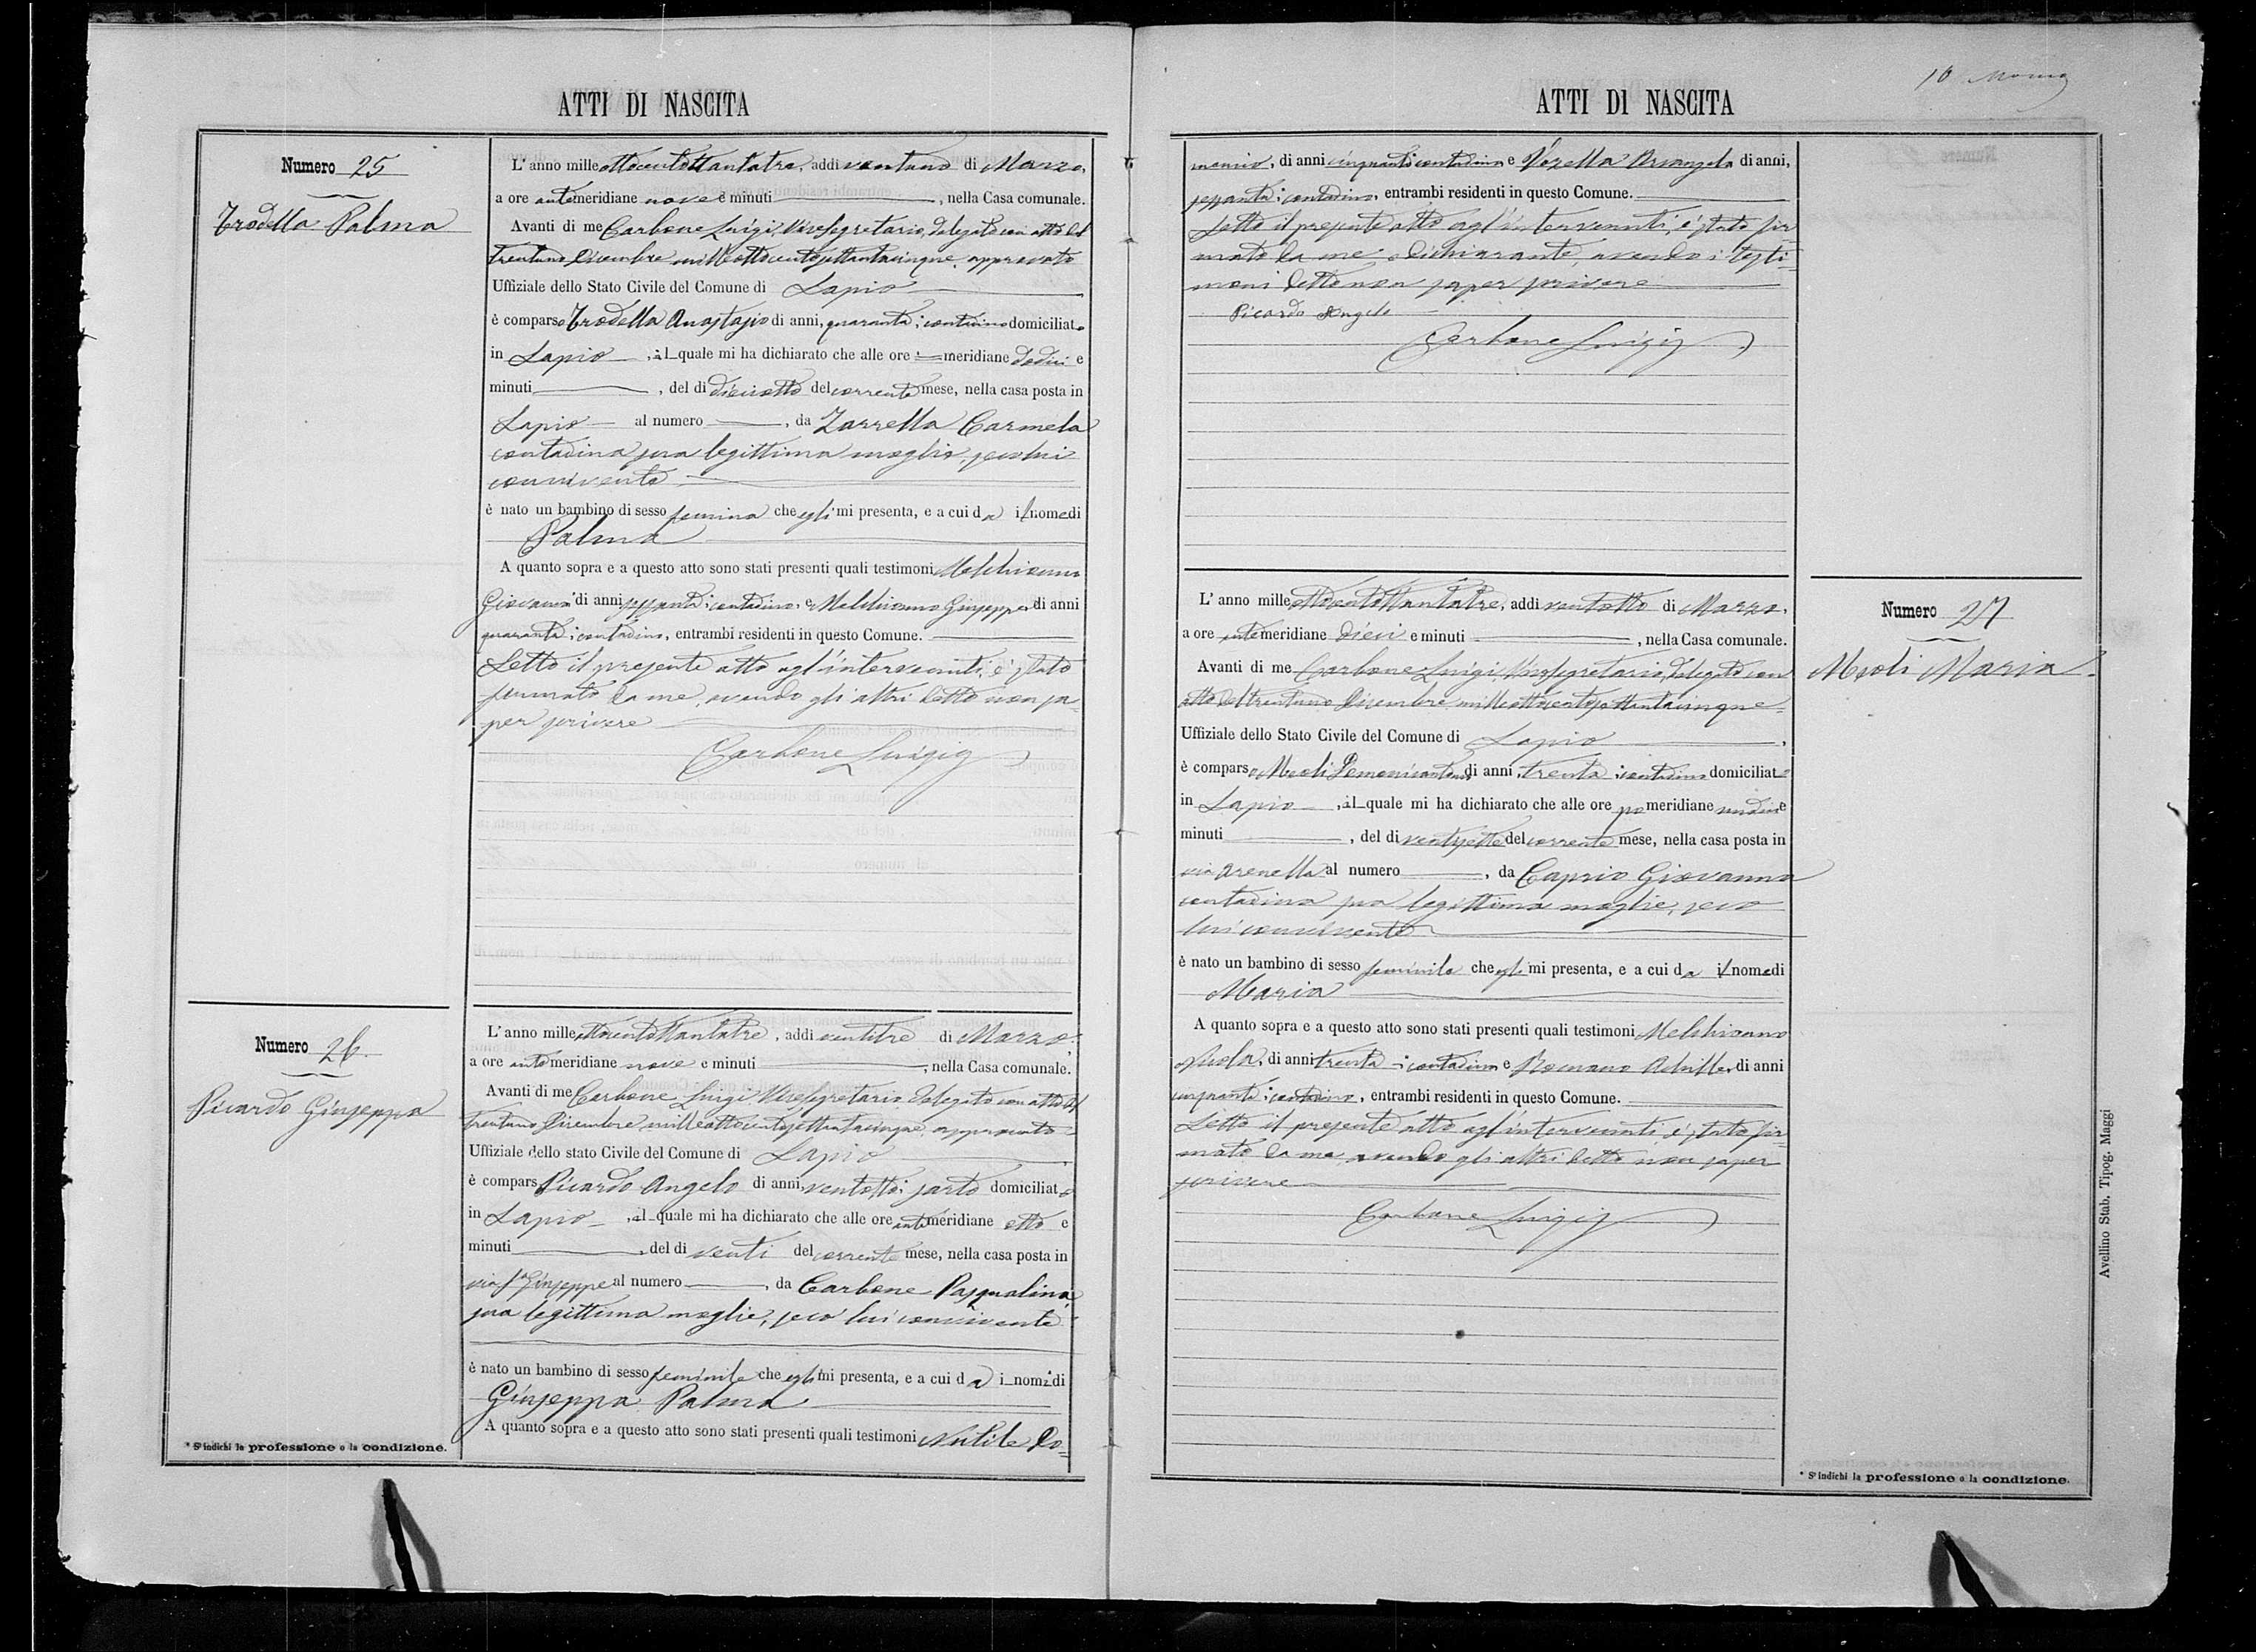 ATTI DI NASCITA
Numero 25
Trodella Palma
L'anno mille ottocentottantatre, addi ventuno di Marzo,
a ore antemeridiane nove e minuti , nella Casa comunale.
Avanti di me Carbone Luigi, Vicesegretario, delegato con atto del
trentuno Dicembre milleottocentosettantacinque, approvato
Uffiziale dello Stato Civile del Comune di Lapio
è comparso Trodella Anastasio di anni, quaranta; contadino domiciliato
in Lapio , il quale mi ha dichiarato che alle ore meridiane dodici e
minuti , del di dieciotto del corrente mese, nella casa posta in
Lapio al numero , da Zarrella Carmela
contadina sua legittima moglie, seco lui
convivente
è nato un bambino di sesso che egli mi presenta, e a cui da il nome di
Palma
A quanto sopra e a questo atto sono stati presenti quali testimoni Melchionno
Giovanni di anni sessanta; contadino, e Melchionno Giuseppe di anni
quaranta; contadino, entrambi residenti in questo Comune.
Letto il presente atto agl'intervenuti, è stato
firmato da me, avendo gli altri detto non sa-
per scrivere
Carbone Luigi
Numero 26.
Picardo Giuseppa
L'anno mille ottocentottantatre, addi ventitre di Marzo,
a ore antemeridiane nove e minuti , nella Casa comunale.
Avanti di me Carbone Luigi Vicesegretario delegato con atto del
trentuno Dicembre milleottocentosettantacinque, approvato
Uffiziale dello stato Civile del Comune di Lapio
è compars Picardo Angelo di anni, ventotto; sarto domiciliato
in Lapio , il quale mi ha dichiarato che alle ore antimeridiane otto e
minuti , del di venti del corrente mese, nella casa posta in
via Sn Giuseppe al numero , da Carbone Pasqualina,
sua legittima moglie, seco lui convivente
è nato un bambino di sesso feminile che egli mi presenta, e a cui da i nomi di
Giuseppa Palma
A quanto sopra e a questo atto sono stati presenti quali testimoni Nutile Do-
* S'indichi la professione o la condizione.
ATTI DI NASCITA
10
menico, di anni cinquanta; contadino e Vozella Arcangelo di anni,
sessanta; contadino, entrambi residenti in questo Comune.
Letto il presente atto agl'intervenuti, è stato fir-
mato da me e dichiarante, avendo i testi-
moni detto non saper scrivere
Picardo Angelo
Carbone Luigi
Numero 27
Meoli Maria
L'anno mille ottocentottantatre, addi ventotto di Marzo,
a ore antemeridiane dieci e minuti , nella Casa comunale.
Avanti di me Carbone Luigi, Vicesegretario, delegato con
atto del trentuno Dicembre milleottocentosettantacinque
Uffiziale dello Stato Civile del Comune di Lapio
è comparso Meoli Domenicantonio di anni, trenta; contadino domiciliato
in Lapio , il quale mi ha dichiarato che alle ore pomeridiane undici e
minuti , del di ventisette del corrente mese, nella casa posta in
via Arenella al numero , da Caprio Giovanna
contadina sua legittima moglie, seco
lui convivente
è nato un bambino di sesso feminile che egli mi presenta, e a cui da il nome di
Maria
A quanto sopra e a questo atto sono stati presenti quali testimoni Melchionno
di anni trenta; contadino e Romano Achille, di anni
cinquanta; contadino, entrambi residenti in questo Comune.
Letto il presente atto agl'intervenuti è stato fir-
mato da me avendo gli altri detto non saper
scrivere
Carbone Luigi
* S'indichi la professione o la condizione.
Avellino Stab. Tipog. Maggi